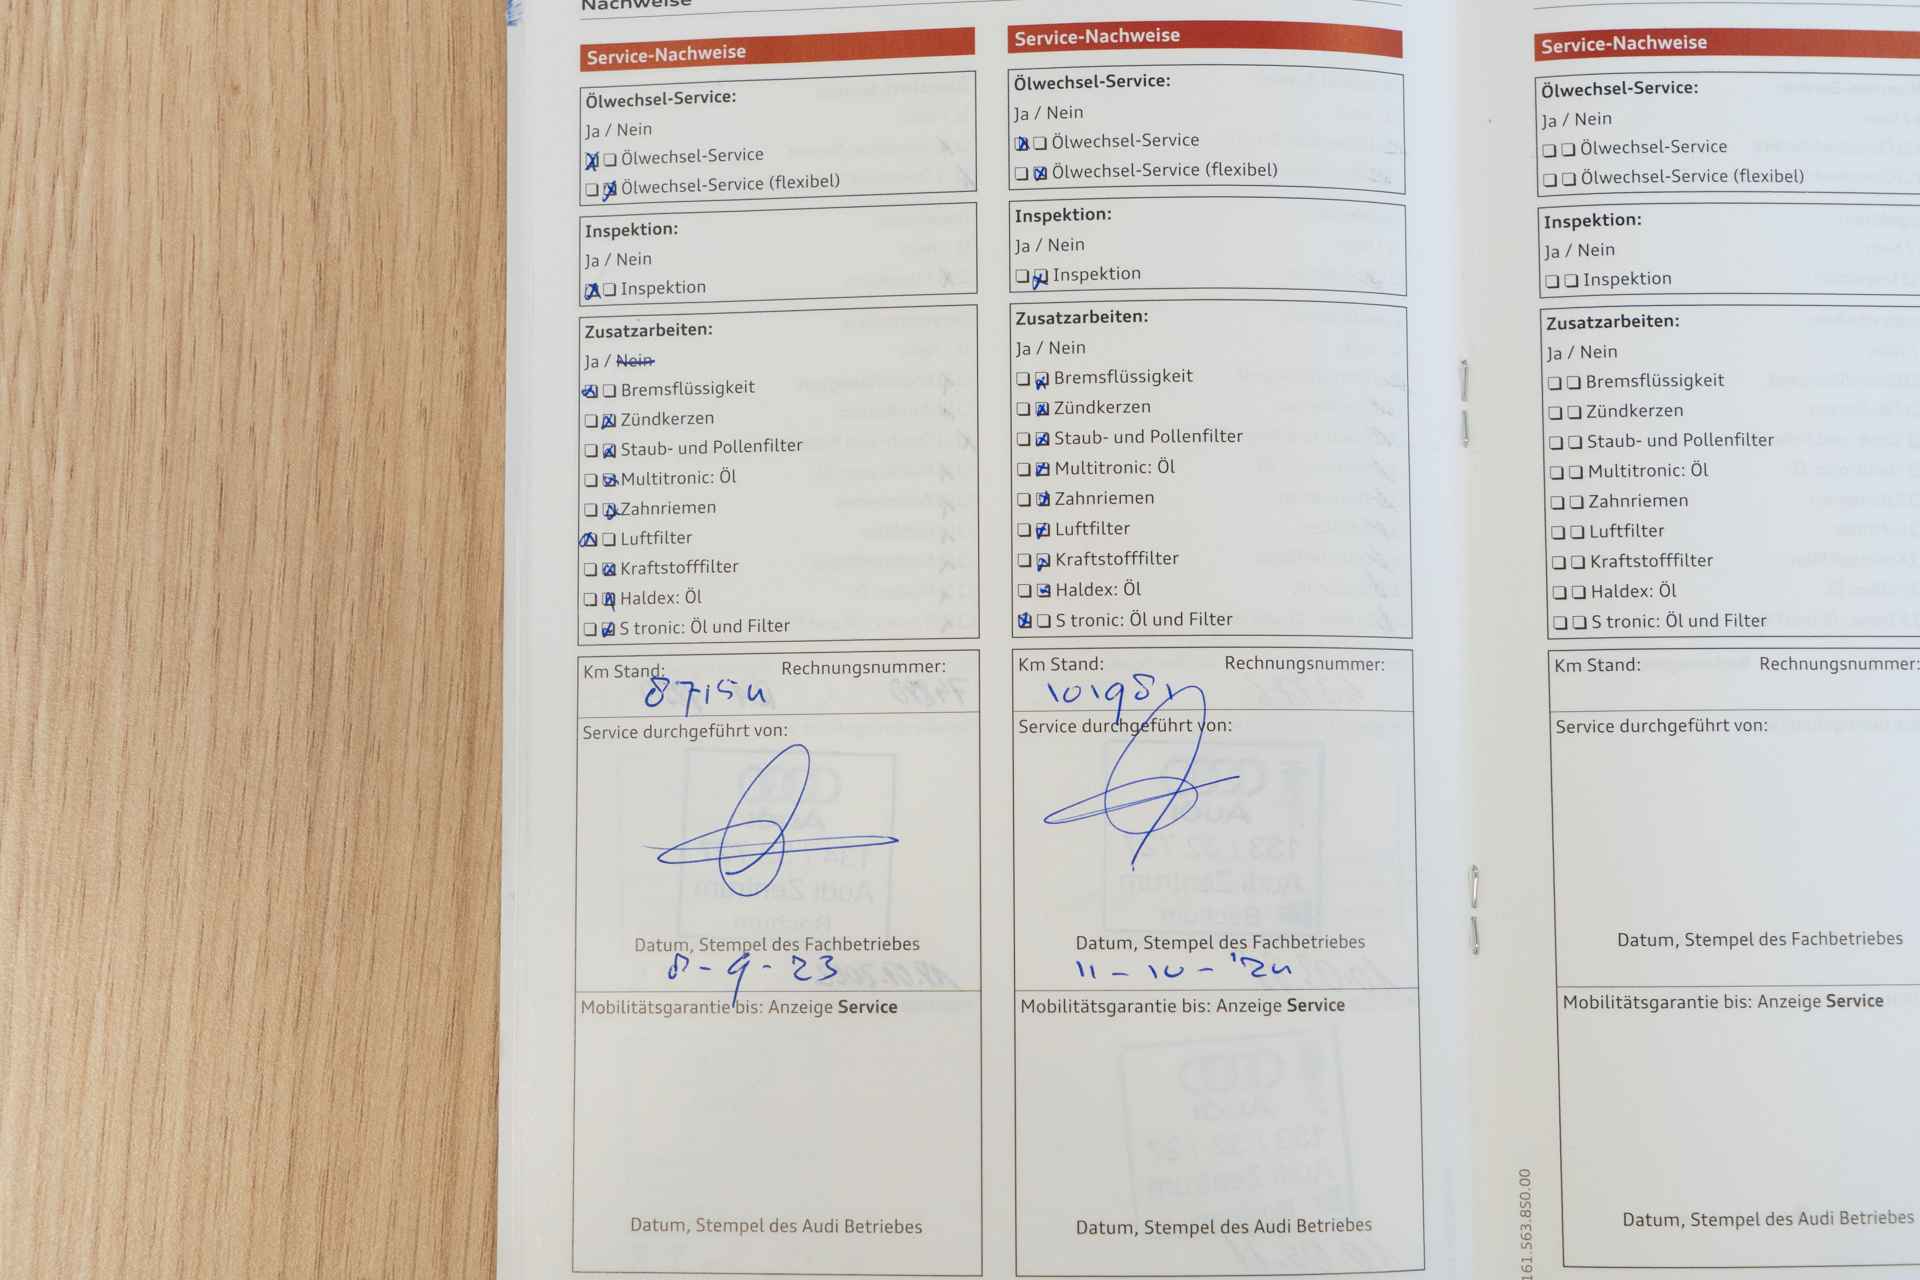 Nachweise
Service-Nachweise
Ölwechsel-Service:
Ja / Nein
Ölwechsel-Service
Ölwechsel-Service (flexibel)
Inspektion:
Ja / Nein
Inspektion
Zusatzarbeiten:
Ja / Nein
Bremsflüssigkeit
Zündkerzen
Staub- und Pollenfilter
Multitronic: Öl
Zahnriemen
Luftfilter
Kraftstofffilter
Haldex: Öl
S tronic: Öl und Filter
Km Stand: Rechnungsnummer:
Service durchgeführt von:
Datum, Stempel des Fachbetriebes
8-9-23
Mobilitätsgarantie bis: Anzeige Service
Datum, Stempel des Audi Betriebes
Service-Nachweise
Ölwechsel-Service:
Ja / Nein
Ölwechsel-Service
Ölwechsel-Service (flexibel)
Inspektion:
Ja / Nein
Inspektion
Zusatzarbeiten:
Ja / Nein
Bremsflüssigkeit
Zündkerzen
Staub- und Pollenfilter
Multitronic: Öl
Zahnriemen
Luftfilter
Kraftstofffilter
Haldex: Öl
S tronic: Öl und Filter
Km Stand: Rechnungsnummer:
Service durchgeführt von:
Datum, Stempel des Fachbetriebes
11-10-'24
Mobilitätsgarantie bis: Anzeige Service
Datum, Stempel des Audi Betriebes
Service-Nachweise
Ölwechsel-Service:
Ja / Nein
Ölwechsel-Service
Ölwechsel-Service (flexibel)
Inspektion:
Ja / Nein
Inspektion
Zusatzarbeiten:
Ja / Nein
Bremsflüssigkeit
Zündkerzen
Staub- und Pollenfilter
Multitronic: Öl
Zahnriemen
Luftfilter
Kraftstofffilter
Haldex: Öl
S tronic: Öl und Filter
Km Stand: Rechnungsnummer:
Service durchgeführt von:
Datum, Stempel des Fachbetriebes
Mobilitätsgarantie bis: Anzeige Service
Datum, Stempel des Audi Betriebes
161.563.850.00